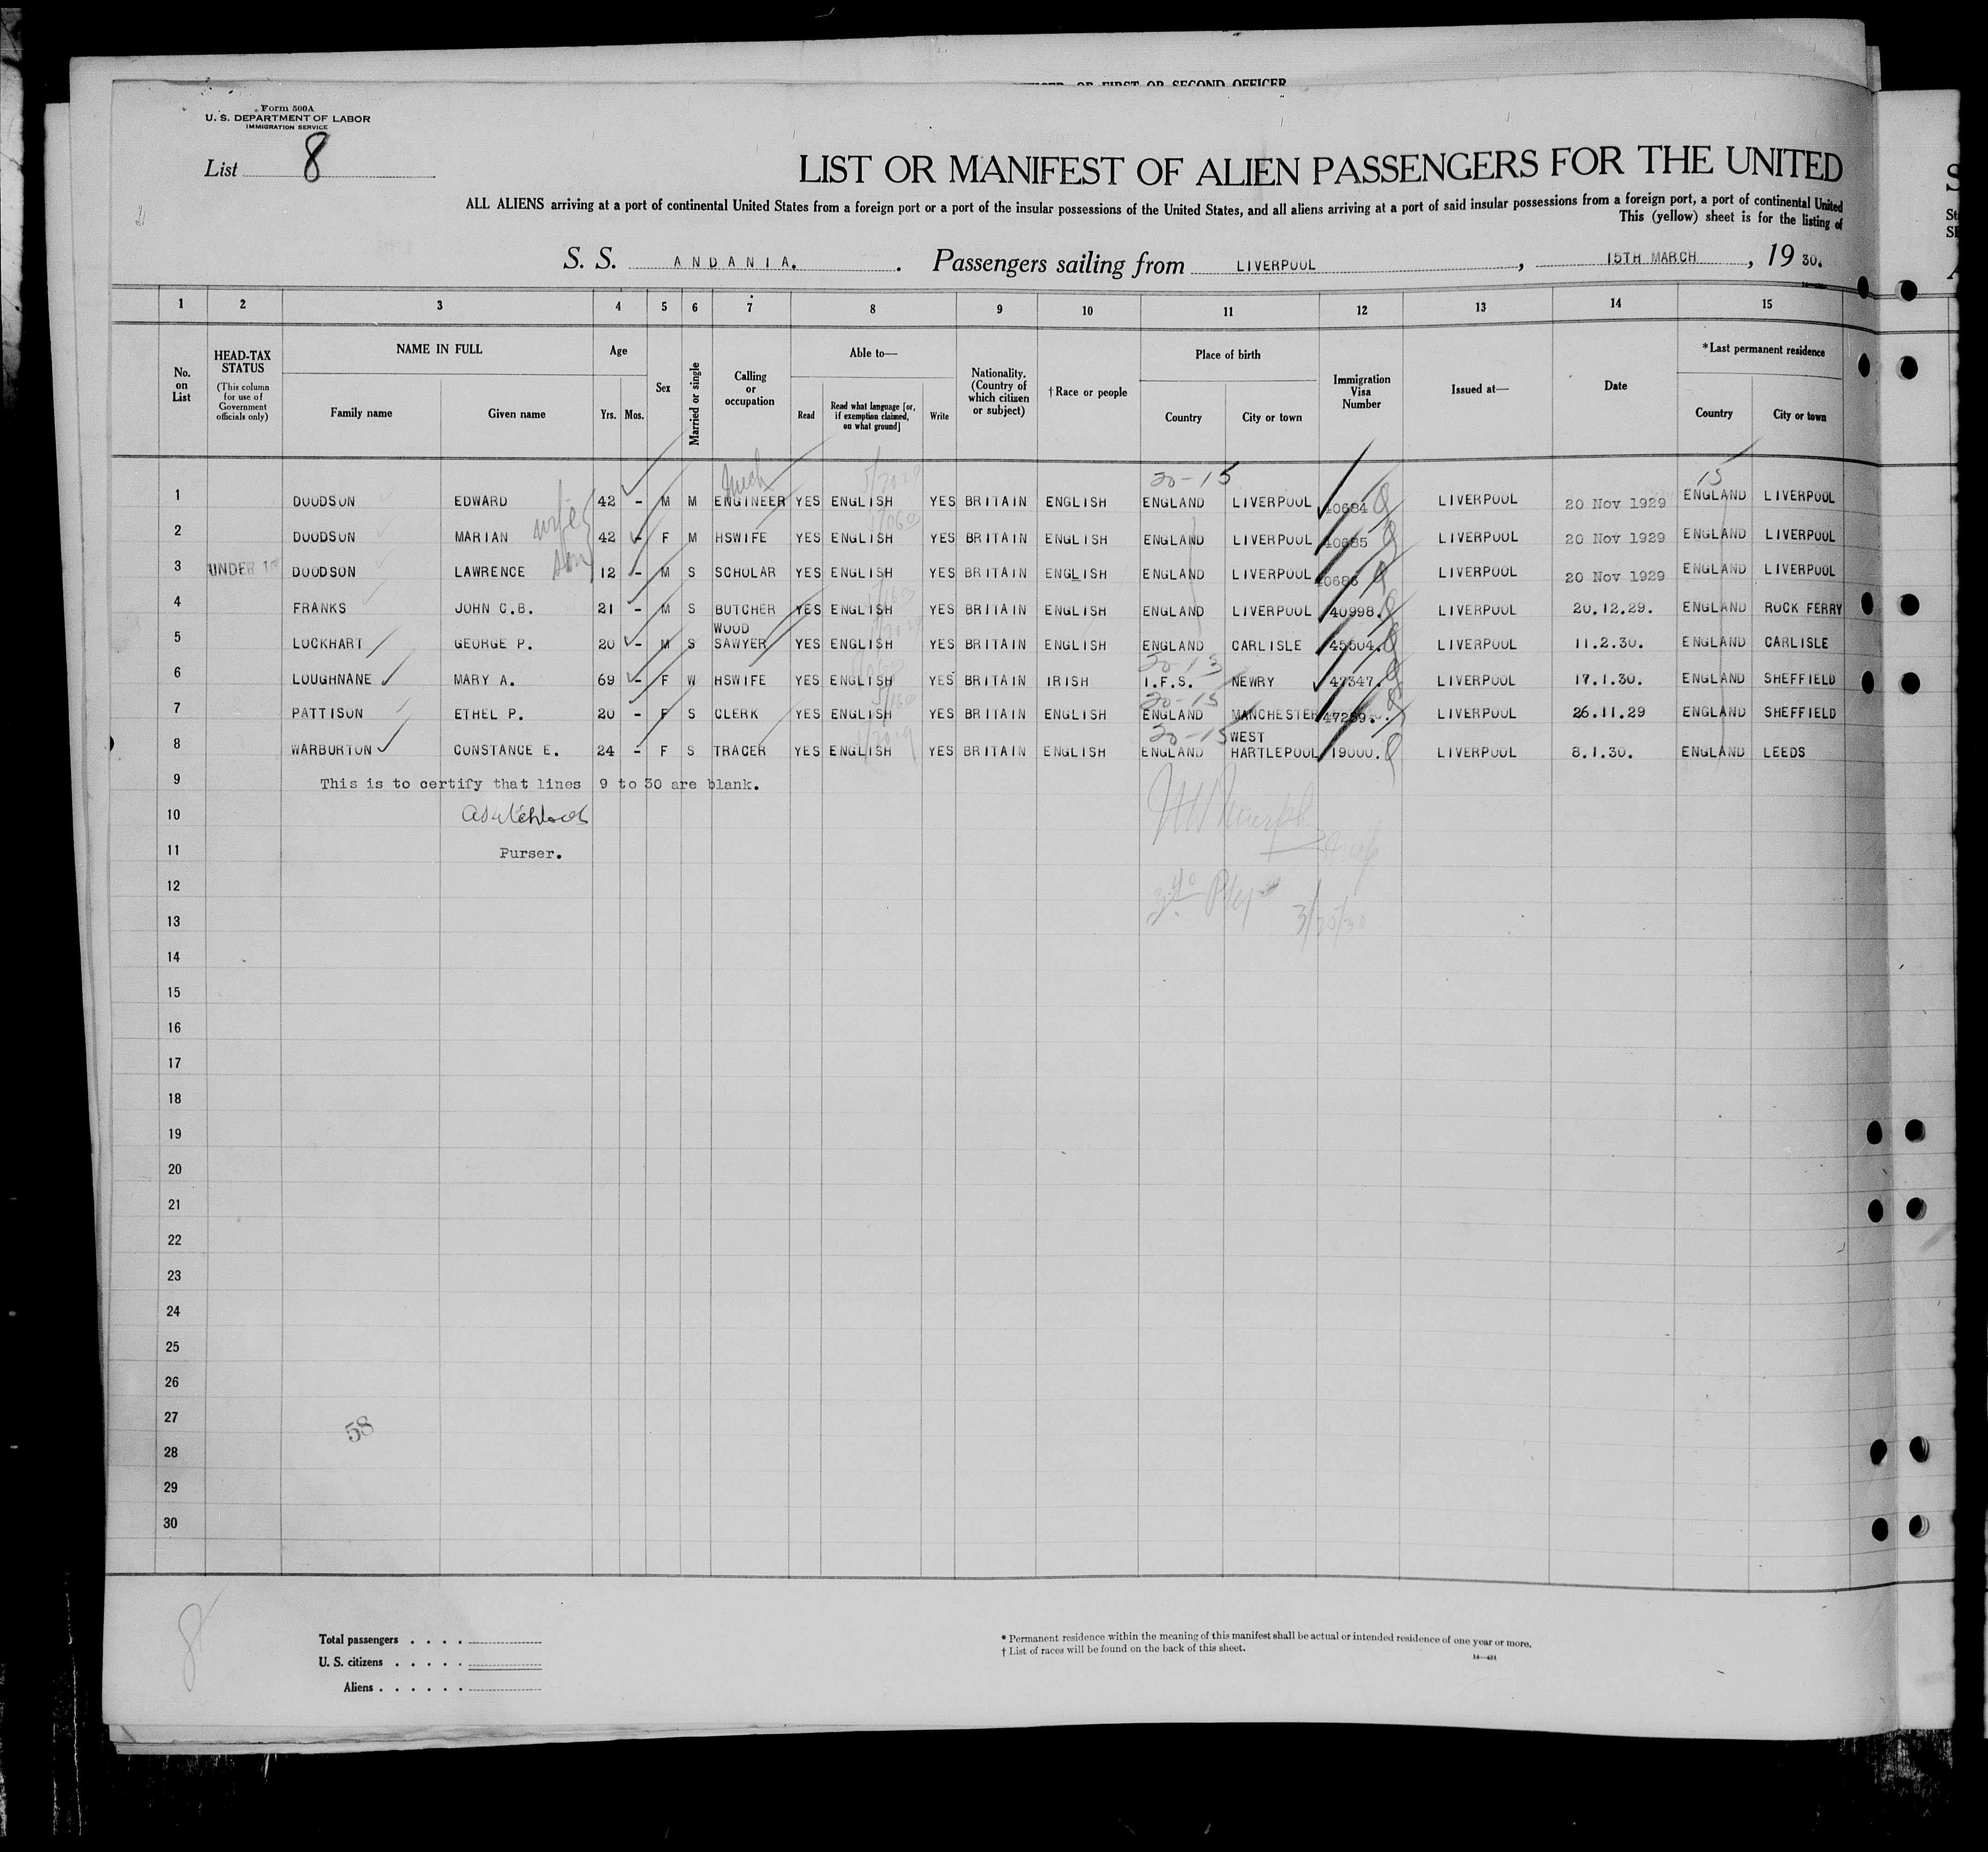 OFFICER, OR FIRST OR SECOND OFFICER
Form 500A
U. S. DEPARTMENT OF LABOR
IMMIGRATION SERVICE
List 8
LIST OR MANIFEST OF ALIEN PASSENGERS FOR THE UNITED
ALL ALIENS arriving at a port of continental United States from a foreign port or a port of the insular possessions of the United States, and all aliens arriving at a port of said insular possessions from a foreign port, a port of continental United
This (yellow) sheet is for the listing of
S. S. ANDANIA. Passengers sailing from LIVERPOOL, 15TH MARCH, 19 30.
1 2 3 4 5 6 7 8 9 10 11 12 13 14 15
No. on List
HEAD-TAX STATUS
(This column for use of Government officials only)
NAME IN FULL
Family name Given name
Age
Yrs. Mos.
Sex
Married or single
Calling or occupation
Able to—
Read
Read what language [or, if exemption claimed, on what ground]
Write
Nationality. (Country of which citizen or subject)
† Race or people
Place of birth
Country City or town
Immigration Visa Number
Issued at—
Date
*Last permanent residence
Country City or town
20-15 15
1 DODSON EDWARD 42 - M M ENGINEER YES ENGLISH YES BRITAIN ENGLISH ENGLAND LIVERPOOL 40684 LIVERPOOL 20 Nov 1929 ENGLAND LIVERPOOL
wife
2 DODSON MARIAN 42 - F M HSWIFE YES ENGLISH YES BRITAIN ENGLISH ENGLAND LIVERPOOL 40685 LIVERPOOL 20 Nov 1929 ENGLAND LIVERPOOL
son
3 UNDER DODSON LAWRENCE 12 - M S SCHOLAR YES ENGLISH YES BRITAIN ENGLISH ENGLAND LIVERPOOL 40686 LIVERPOOL 20 Nov 1929 ENGLAND LIVERPOOL
4 FRANKS JOHN C.B. 21 - M S BUTCHER YES ENGLISH YES BRITAIN ENGLISH ENGLAND LIVERPOOL 40998. LIVERPOOL 20.12.29. ENGLAND ROCK FERRY
5 LOCKHART GEORGE P. 20 - M S WOOD SAWYER YES ENGLISH YES BRITAIN ENGLISH ENGLAND CARLISLE 45504. LIVERPOOL 11.2.30. ENGLAND CARLISLE
6 LOUGHNANE MARY A. 69 - F W HSWIFE YES ENGLISH YES BRITAIN IRISH I.F.S. NEWRY 47347. LIVERPOOL 17.1.30. ENGLAND SHEFFIELD
20-15
7 PATTISON ETHEL P. 20 - F S CLERK YES ENGLISH YES BRITAIN ENGLISH ENGLAND MANCHESTER 47259. LIVERPOOL 26.11.29 ENGLAND SHEFFIELD
20-15
8 WARBURTON CONSTANCE E. 24 - F S TRACER YES ENGLISH YES BRITAIN ENGLISH ENGLAND WEST HARTLEPOOL 19000. LIVERPOOL 8.1.30. ENGLAND LEEDS
9 This is to certify that lines 9 to 30 are blank.
10
11 Purser.
12
13
14
15
16
17
18
19
20
21
22
23
24
25
26
27
58
28
29
30
8
Total passengers . . . .
U. S. citizens . . . . .
Aliens . . . . . .
* Permanent residence within the meaning of this manifest shall be actual or intended residence of one year or more.
† List of races will be found on the back of this sheet.